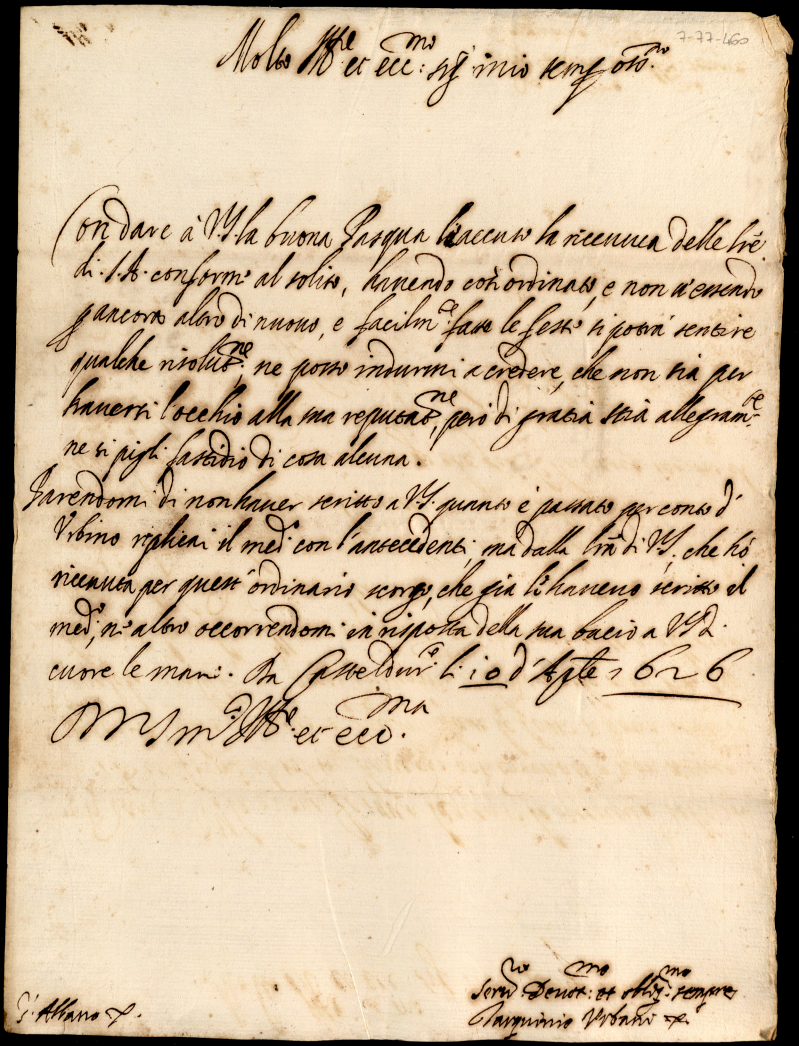 7-77-460
Molto Ill.re et ecc.mo sig.r mio semp. oss.mo
Con dare à V.S. la buona Pasqua l'accuso la riceuuta delle lrē
di S.A. conforme al solito, hauendo così ordinato, e non u'essendo
p ancora altro di nuouo, e facilm.te fatte le feste si potrà sentire
qualche risolut.ne, ne posso indurmi a credere, che non sia per
hauersi l'occhio alla sua reputat.ne, però di gratia stia allegram.te
ne si pigli fastidio di cosa alcuna.
Parendomi di non hauer scritto a V.S. quanto è passato per conto d'
Vrbino replicai il med.o con l'antecedenti, ma dalla lrā di V.S. che hò
riceuuta per quest'ordinario scorgo, che già l'haueuo scritto il
med.o, n'altro occorrendomi in risposta della sua bacio a V.S. di
cuore le mani. Da Casteldur.te li 10 d'Aple 1626
D V S m.to Ill.re et ecc.ma
S.r Albano &.
Ser.re Deuot.mo et oblig.mo sempre
Tarquinio Vrbani &.